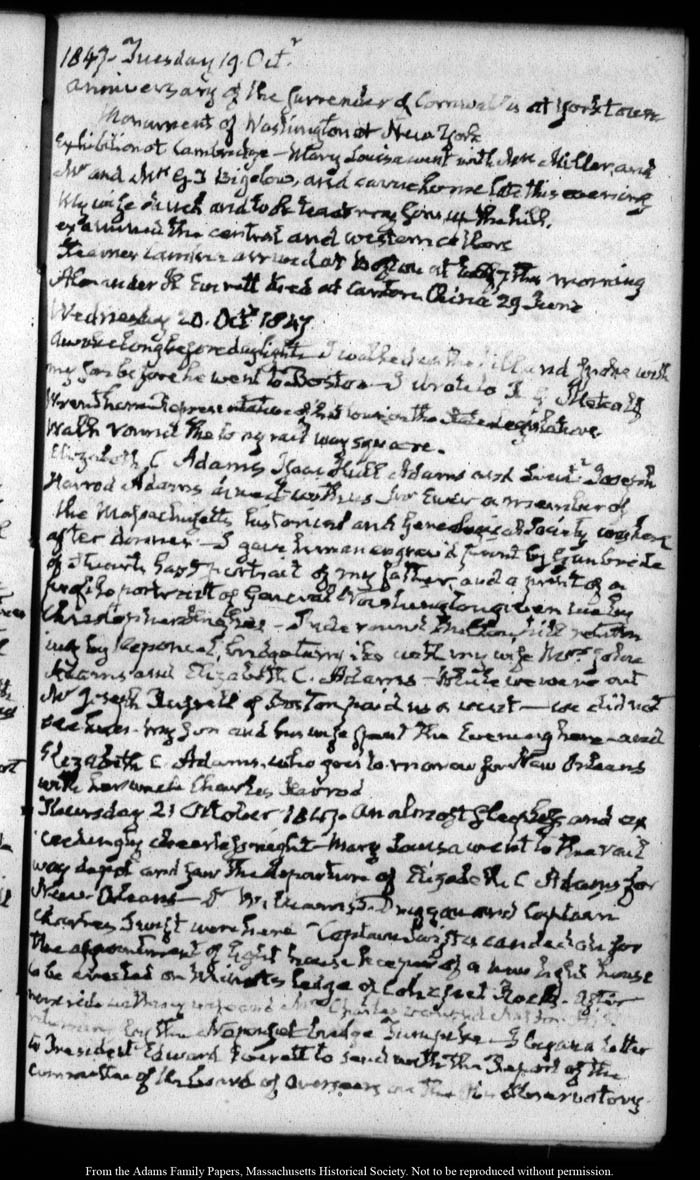 1847. Tuesday 19. Octr.
Anniversary of the surrender of Cornwallis at Yorktown
Monument of Washington at New York
Exhibition at Cambridge — Mary Louisa went with Mrs Miller, and
Mr and Mrs G T Bigelow, and came home late this evening
My wife and took tea at my Sons, up the hill.
examined the central and western
Steamer arrived at Boston at this morning
Alexander H Everett died at Canton China 29 June
Wednesday 20. Octr 1847
Awoke long before daylight. I walked up the hill and spoke with
my Son before he went to Boston — I wrote to Metcalf
Wrentham Representative of his town in the State Legislature
Walk round the rail way square.
Elizabeth C Adams, Isaac Hull Adams and Lieutt Joseph
Harrod Adams dined with us Mr Ewer a member of
the Massachusetts Historical and Genealogical Society was here
after dinner — I gave him an engraved print by
of Stuarts last portrait of my father, and a print of a
profile portrait of General Washington given me by
Christopher Hughes — I rode round Milton hill return
ing by Neponset bridge turnpike with my wife Mrs John
Adams and Elizabeth C. Adams — While we were out
Mr Joseph Russell of Boston paid us a visit — we did not
see him. My son and his wife spent the Evening here — and
Elizabeth C. Adams, who goes to-morrow for New Orleans
with her uncle Charles Harrod
Thursday 21 October 1847. An almost sleepless and ex
ceedingly cheerless night — Mary Louisa went to the rail
way depot and saw the departure of Elizabeth C Adams for
New-Orleans — Duggan and Captain
Charles Swift were here — Captain Swift is a candidate for
the appointment of light house keeper of a new light house
to be erected on Minots ledge of Cohasset Rocks. After
noon ride with my wife and Mrs Charles
returning by the Neponset bridge Turnpike — I began a letter
to President Edward Everett to send with the Report of the
committee of the board of Overseers on the Observatory.
From the Adams Family Papers, Massachusetts Historical Society. Not to be reproduced without permission.